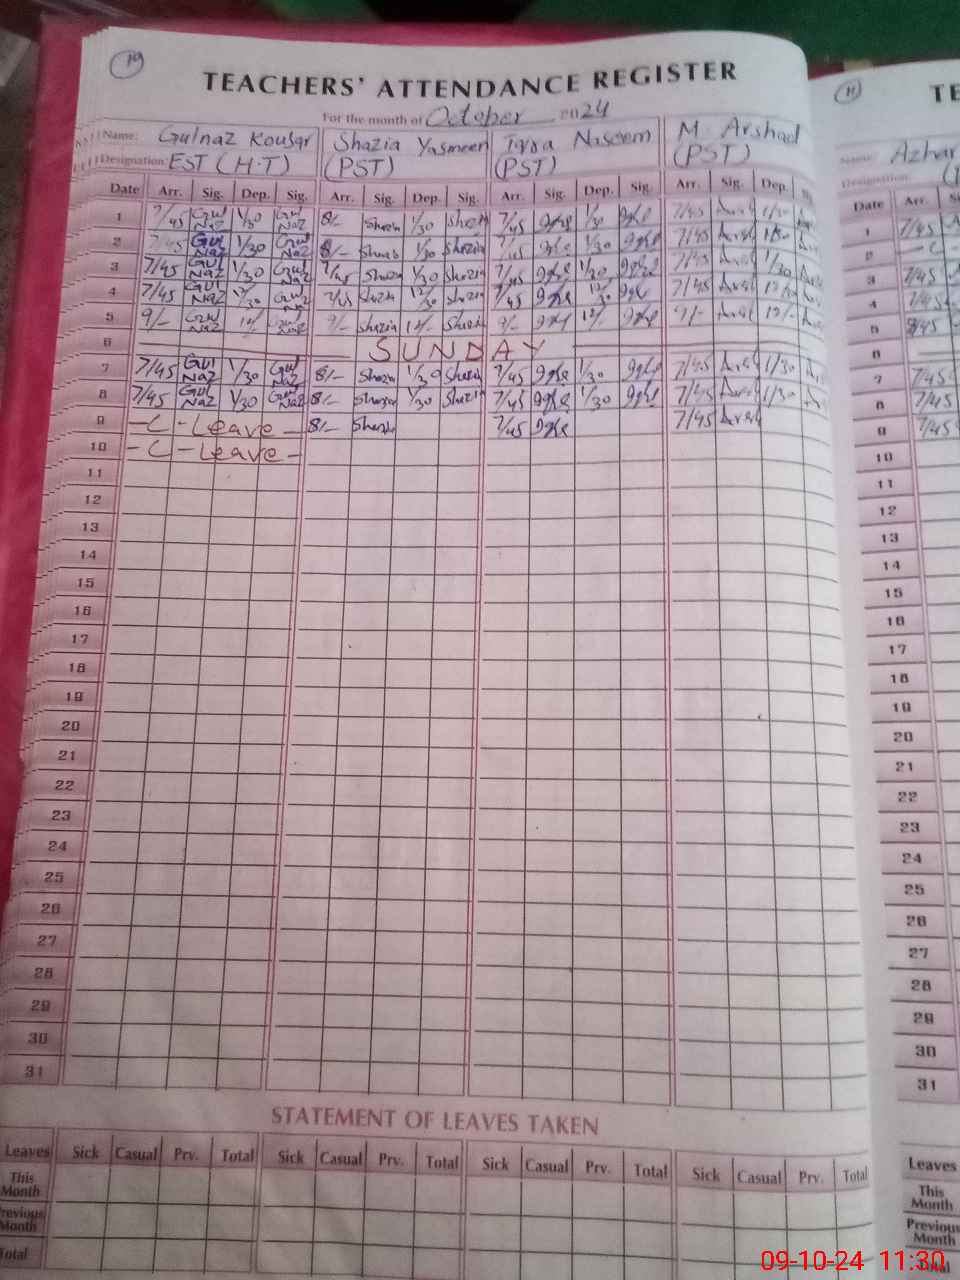 19
TEACHERS' ATTENDANCE REGISTER
For the month of October 2024
Name: Gulnaz Kousar Shazia Yasmeen Iqra Naseem M Arshad
Designation: EST (H.T) (PST) (PST) (PST)
Date Arr. Sig. Dep. Sig. Arr. Sig. Dep. Sig. Arr. Sig. Dep. Sig. Arr. Sig. Dep.
1 7/45 Gul Naz 1/30 Gul Naz 8/- Shazia 1/30 Shazia 7/45 1/30 7/45 1/30
2 7/45 Gul Naz 1/30 Gul Naz 8/- Shazia 1/30 Shazia 7/45 1/30 7/45 1/30
3 7/45 Gul Naz 1/30 Gul Naz 7/45 Shazia 1/30 Shazia 7/45 1/30 7/45 1/30
4 7/45 Gul Naz 12/30 Gul Naz 7/45 Shazia 12/30 Shazia 7/45 12/30 7/45 12/30
5 9/- Gul Naz 12/- Gul Naz 9/- Shazia 12/- Shazia 9/- 12/- 9/- 12/-
6 SUNDAY
7 7/45 Gul Naz 1/30 Gul Naz 8/- Shazia 1/30 Shazia 7/45 1/30 7/45 1/30
8 7/45 Gul Naz 1/30 Gul Naz 8/- Shazia 1/30 Shazia 7/45 1/30 7/45 1/30
9 - C - Leave - 8/- Shazia 7/45 7/45
10 - C - Leave -
11
12
13
14
15
16
17
18
19
20
21
22
23
24
25
26
27
28
29
30
31
STATEMENT OF LEAVES TAKEN
Leaves Sick Casual Prv. Total Sick Casual Prv. Total Sick Casual Prv. Total Sick Casual Prv. Total
This Month
Previous Month
Total
11
TE
Name: Azhar
Designation:
Date Arr.
1 7/45
2
3 7/45
4 7/45
5 8/45
6
7 7/45
8 7/45
9 7/45
10
11
12
13
14
15
16
17
18
19
20
21
22
23
24
25
26
27
28
29
30
31
Leaves
This Month
Previous Month
Total
09-10-24 11:30